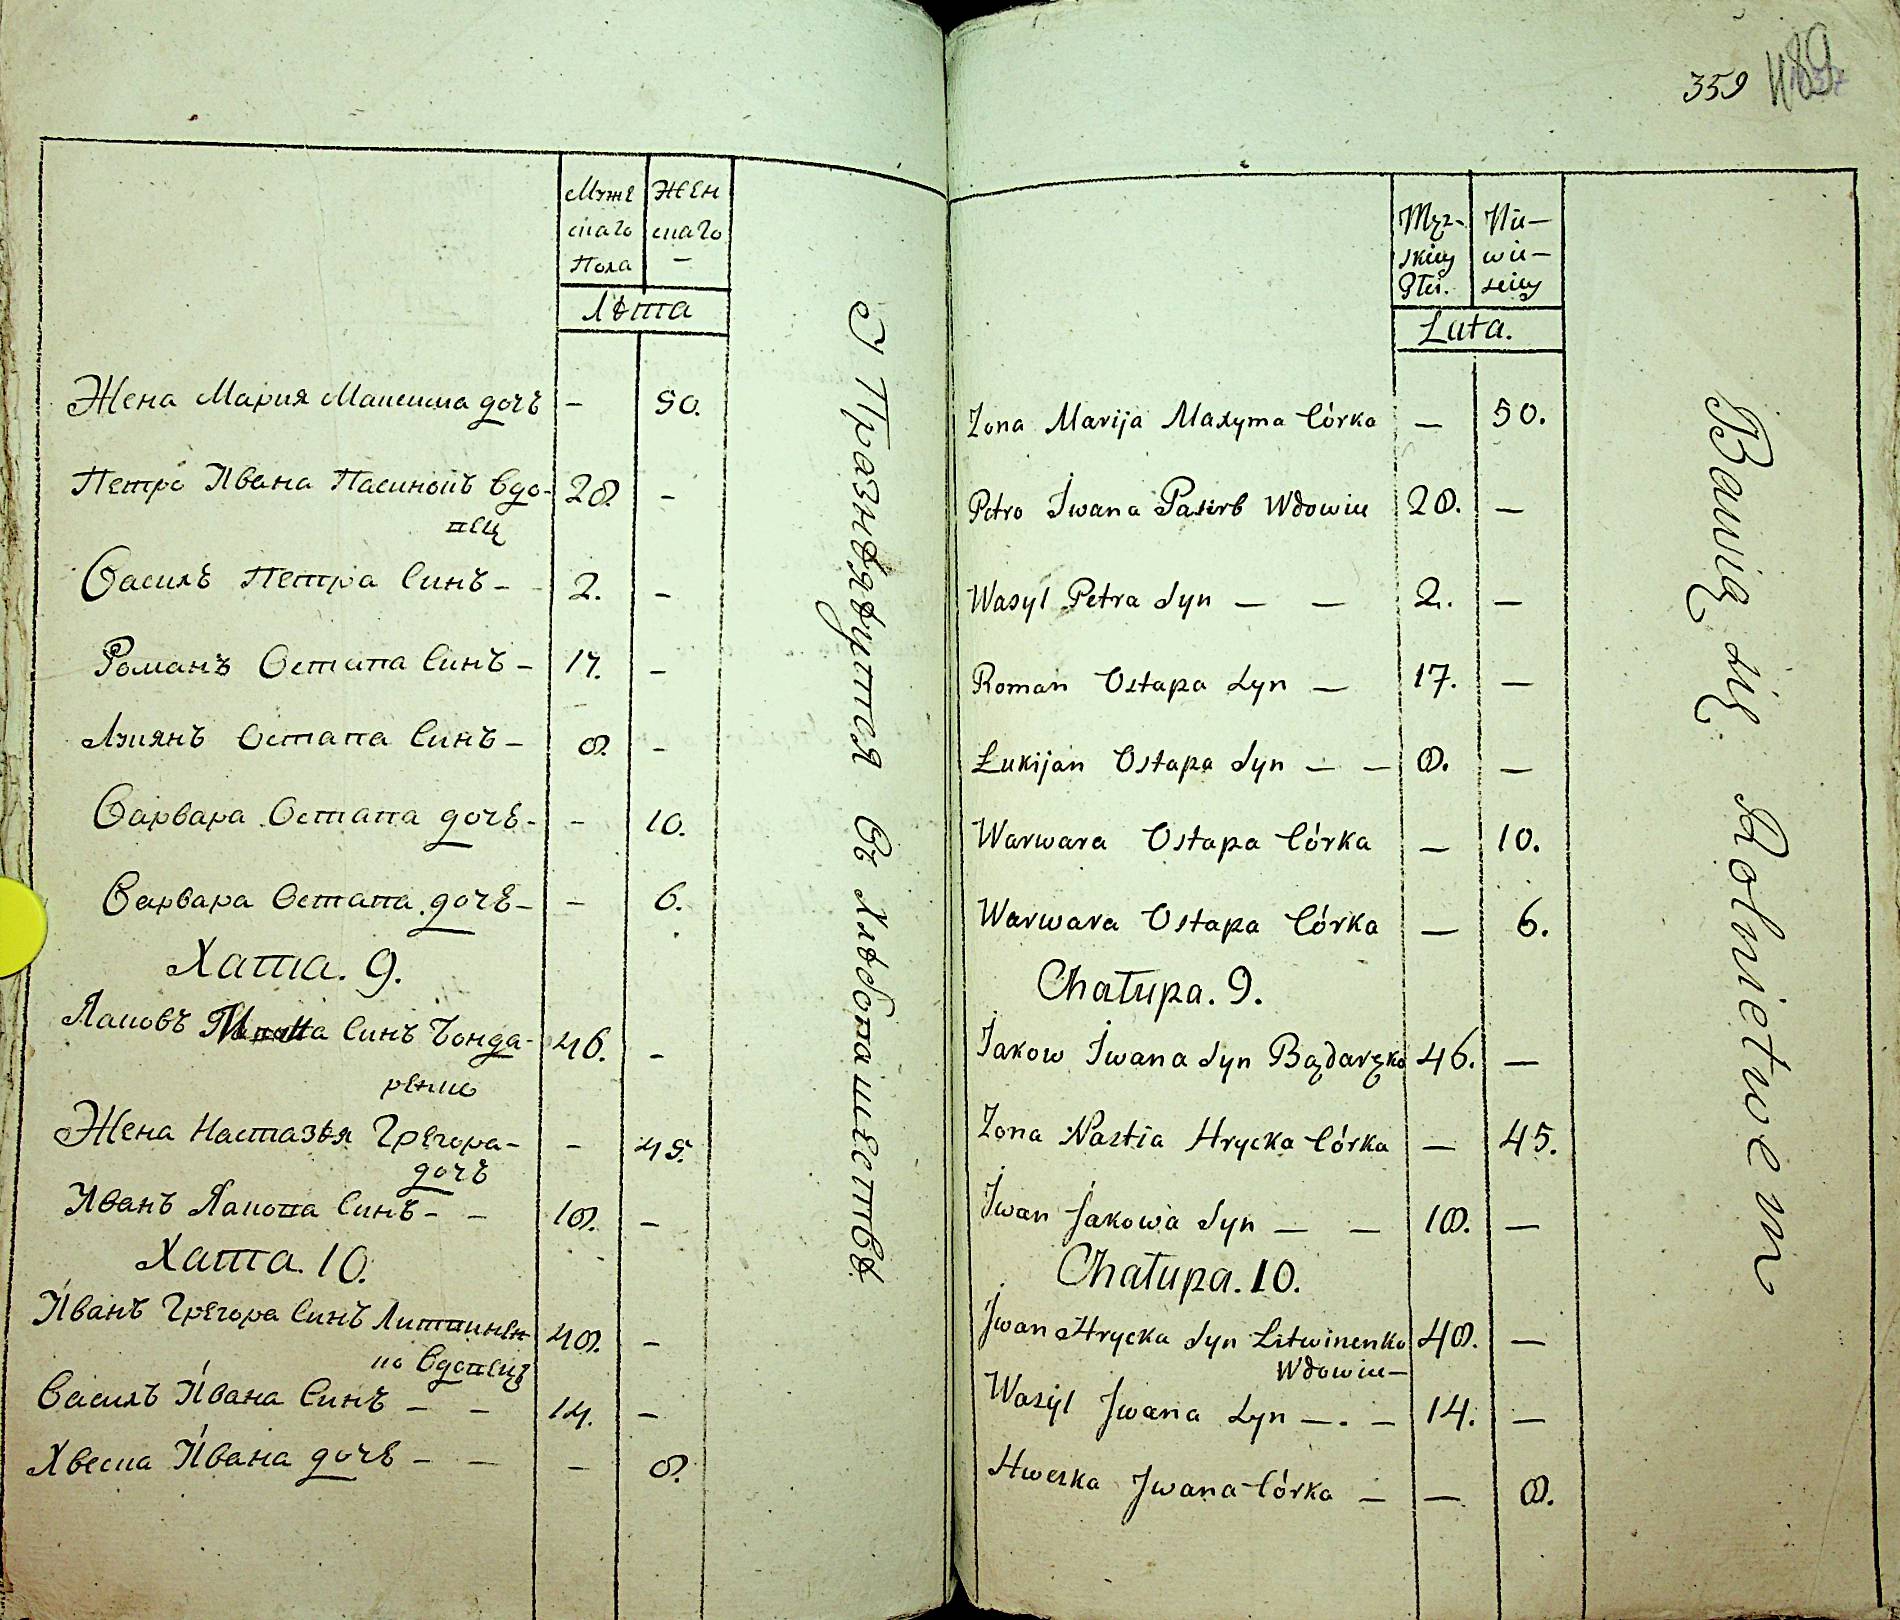 Муже Жен
скаго скаго
Пола —
Лѣта
Жена Мария Максима дочъ — 50.
Петро Ивана Пасинокъ вдо- 28. —
вец
Василъ Петра Синъ — 2. —
Романъ Остапа Синъ — 17. —
Лукиянъ Остапа Синъ — 8. —
Варвара Остапа дочъ — — 10.
Варвара Остапа дочъ — — 6.
Хата. 9.
Яковъ Синъ Бонда- 46. —
ренко
Жена Настазѣя Грегора- — 45.
дочъ
Иванъ Якова Синъ — — 18. —
Хата. 10.
Иванъ Грегора Синъ Литвинен- 48. —
ко вдовецъ
Василъ Ивана Синъ — — 14. —
Хвеска Ивана дочъ — — — 8.
Упражнѣяѣутся въ хлѣбопашествѣ
359
Męz- Nie-
skiey wie-
Płci. sciey
Lata.
Zona Marija Maxyma Córka — 50.
Petro Iwana Pasirb Wdowiec 28. —
Wasyl Petra Syn — — 2. —
Roman Ostapa Syn — 17. —
Łukijan Ostapa Syn — — 8. —
Warwara Ostapa Córka — 10.
Warwara Ostapa Córka — 6.
Chałupa. 9.
Jakow Iwana Syn Bądaręko 46. —
Zona Nastia Hrycka Córka — 45.
Iwan Jakowa Syn — — 18. —
Chałupa. 10.
Iwan Hrycka Syn Litwinenko 48. —
Wdowiec —
Wasyl Iwana Syn — . — 14. —
Hweska Iwana Córka — — 8.
Bawią się Rolnictwem